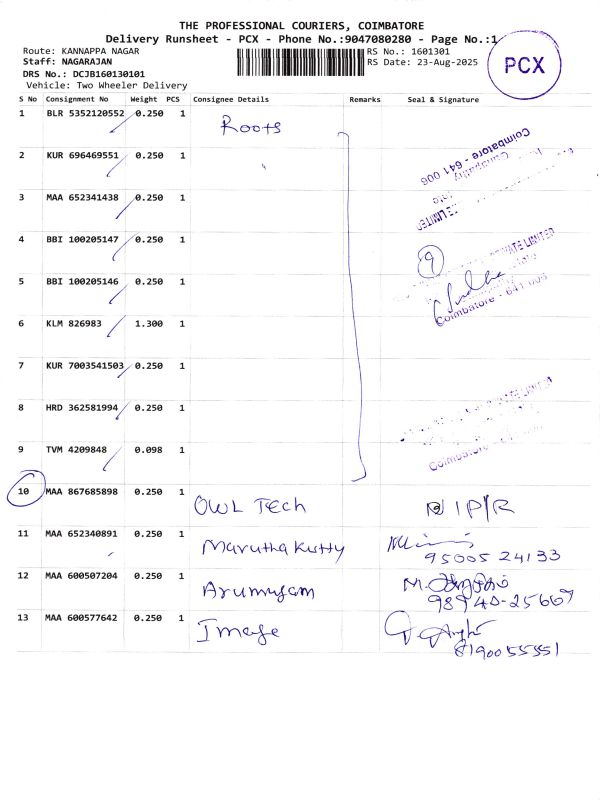 THE PROFESSIONAL COURIERS, COIMBATORE
Delivery Runsheet - PCX - Phone No.:9047080280 - Page No.:1
Route: KANNAPPA NAGAR
RS No.: 1601301
Staff: NAGARAJAN
RS Date: 23-Aug-2025
DRS No.: DCJB160130101
Vehicle: Two Wheeler Delivery
PCX
S No Consignment No Weight PCS Consignee Details Remarks Seal & Signature
1 BLR 5352120552 0.250 1 Roots
Coimbatore - 641 006
2 KUR 696469551 0.250 1
3 MAA 652341438 0.250 1
4 BBI 100205147 0.250 1
9
5 BBI 100205146 0.250 1
Coimbatore - 641 006
6 KLM 826983 1.300 1
7 KUR 7003541503 0.250 1
8 HRD 362581994 0.250 1
9 TVM 4209848 0.098 1
10 MAA 867685898 0.250 1 OWL Tech
11 MAA 652340891 0.250 1 Marutha Kutty
95005 24133
12 MAA 600507204 0.250 1 Arumugam
98940-25667
13 MAA 600577642 0.250 1 Image
8190055551